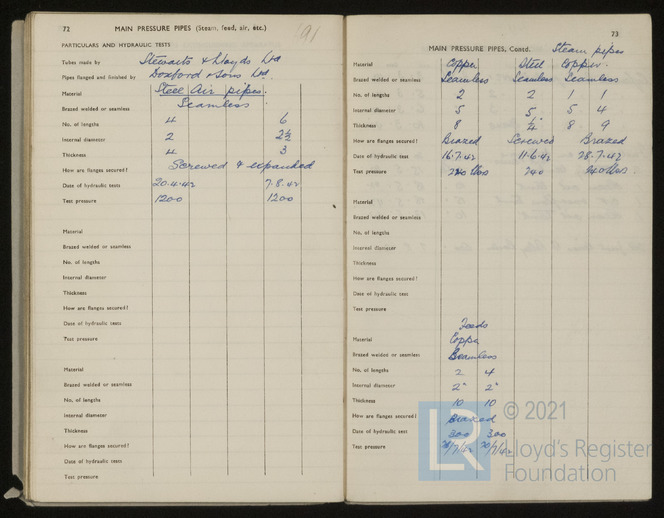 72 MAIN PRESSURE PIPES (Steam, feed, air, etc.)
PARTICULARS AND HYDRAULIC TESTS
Tubes made by Stewarts & Lloyds Ltd
Pipes flanged and finished by Doxford & Sons Ltd.
Material Steel Air pipes.
Brazed welded or seamless Seamless
No. of lengths 4 6
Internal diameter 2 2½
Thickness 4 3
How are flanges secured? Screwed & expanded
Date of hydraulic tests 20.4.42 7.8.42
Test pressure 1200 1200
Material
Brazed welded or seamless
No. of lengths
Internal diameter
Thickness
How are flanges secured?
Date of hydraulic tests
Test pressure
Material
Brazed welded or seamless
No. of lengths
Internal diameter
Thickness
How are flanges secured?
Date of hydraulic tests
Test pressure
73
MAIN PRESSURE PIPES, Contd. Steam pipes
Material Copper Steel Copper.
Brazed welded or seamless Seamless Seamless Seamless
No. of lengths 2 2 1 1
Internal diameter 5 5. 5 4
Thickness 8 ¼ 8 9
How are flanges secured? Brazed Screwed Brazed
Date of hydraulic test 16.7.42 11.6.42 28.7.42
Test pressure 240 lbs 240 240 lbs
Material
Brazed welded or seamless
No. of lengths
Internal diameter
Thickness
How are flanges secured?
Date of hydraulic test
Test pressure
Feeds
Material Copper
Brazed welded or seamless Seamless
No. of lengths 2 4
Internal diameter 2" 2"
Thickness 10 10
How are flanges secured? Brazed
Date of hydraulic tests 300 300
Test pressure
LR © 2021
Lloyd's Register
Foundation